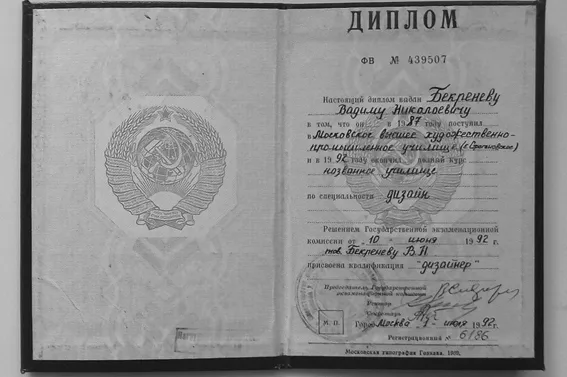 ДИПЛОМ
ФВ № 439507
Настоящий диплом выдан Бекреневу
Вадиму Николаевичу
в том, что он в 1987 году поступил
в Московское высшее художественно-
промышленное училище (б. Строгановское)
и в 1992 году окончил полный курс
названное училище
по специальности дизайн
Решением Государственной экзаменационной
комиссии от 10 июня 1992 г.
тов. Бекреневу В.Н
присвоена квалификация "дизайнер"
Председатель Государственной
экзаменационной комиссии
Ректор
Секретарь
М. П.
Город Москва 1 июля 1992г.
Регистрационный № 6186
Московская типография Гознака. 1989.